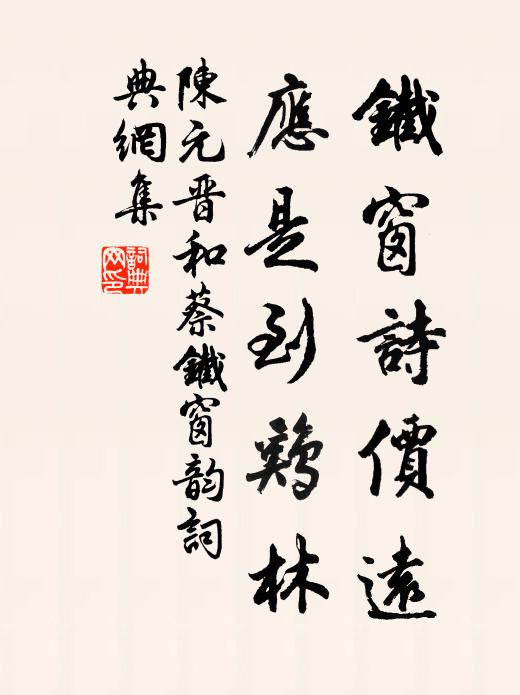 鐵窗詩價遠
應是到鷄林
陳元晋和蔡鐵窗韵詞
典網集
詞典網印